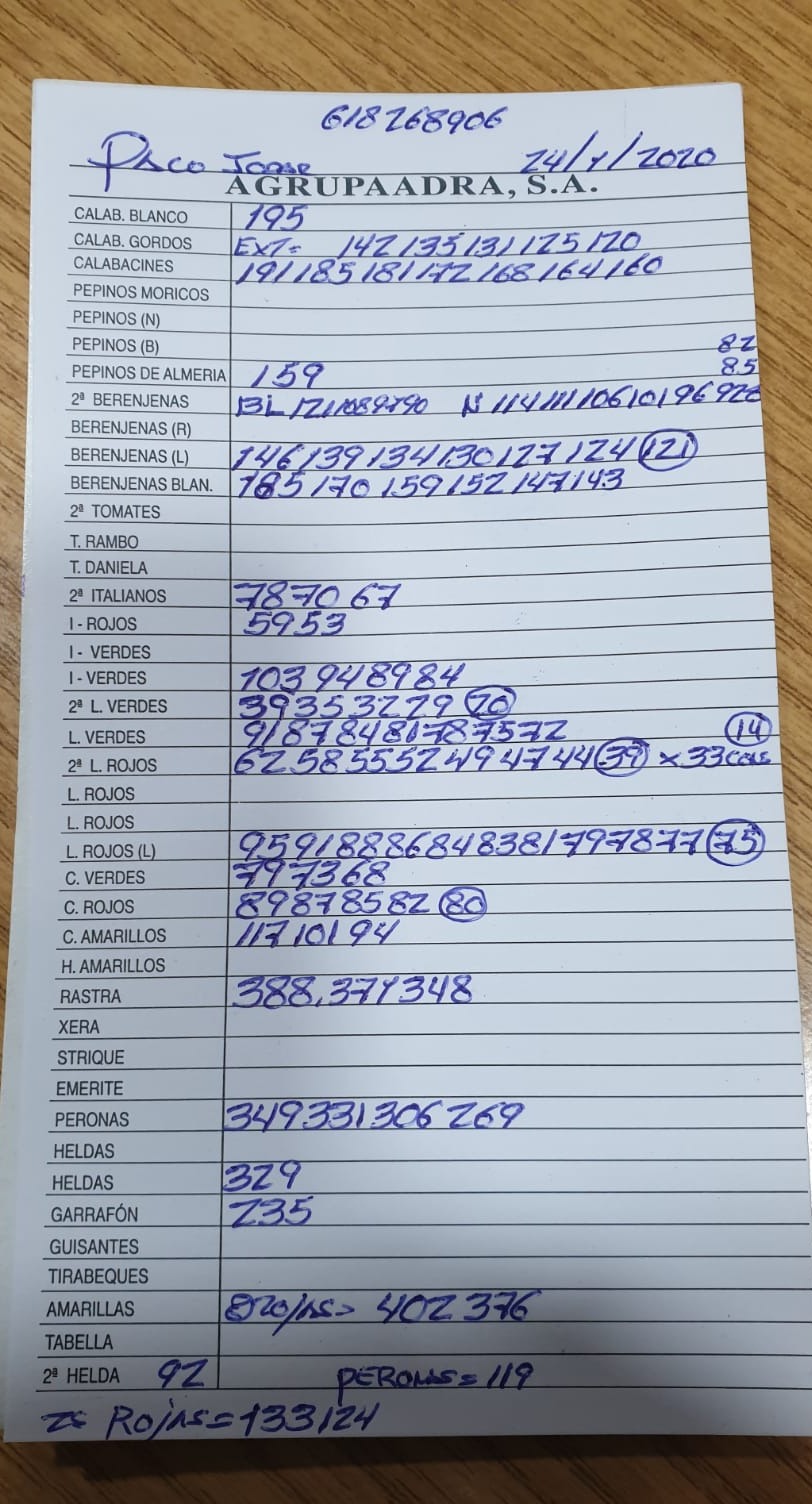 618268906
PACO JORGE 24/1/2020
AGRUPAADRA, S.A.
CALAB. BLANCO 195
CALAB. GORDOS EXT= 142 135 131 125 120
CALABACINES 191 185 181 172 168 164 160
PEPINOS MORICOS
PEPINOS (N)
PEPINOS (B) 82
PEPINOS DE ALMERIA 159 85
2ª BERENJENAS BL 121 108 97 90 N 114 111 106 101 96 92
BERENJENAS (R)
BERENJENAS (L) 146 139 134 130 127 124 121
BERENJENAS BLAN. 185 170 159 152 147 143
2ª TOMATES
T. RAMBO
T. DANIELA
2ª ITALIANOS 78 70 67
I - ROJOS 59 53
I - VERDES
I - VERDES 103 94 89 84
2ª L. VERDES 39 35 32 29 20
L. VERDES 91 87 84 81 78 75 72 14
2ª L. ROJOS 62 58 55 52 49 47 44 39 x 33 cas
L. ROJOS
L. ROJOS
L. ROJOS (L) 95 91 88 86 84 83 81 79 78 77 75
C. VERDES 79 73 68
C. ROJOS 89 87 85 82 80
C. AMARILLOS 117 101 94
H. AMARILLOS
RASTRA 388, 371 348
XERA
STRIQUE
EMERITE
PERONAS 349 331 306 269
HELDAS
HELDAS 329
GARRAFÓN 235
GUISANTES
TIRABEQUES
AMARILLAS = 402 376
TABELLA
2ª HELDA 92 PERONAS = 119
Rojas = 133 124